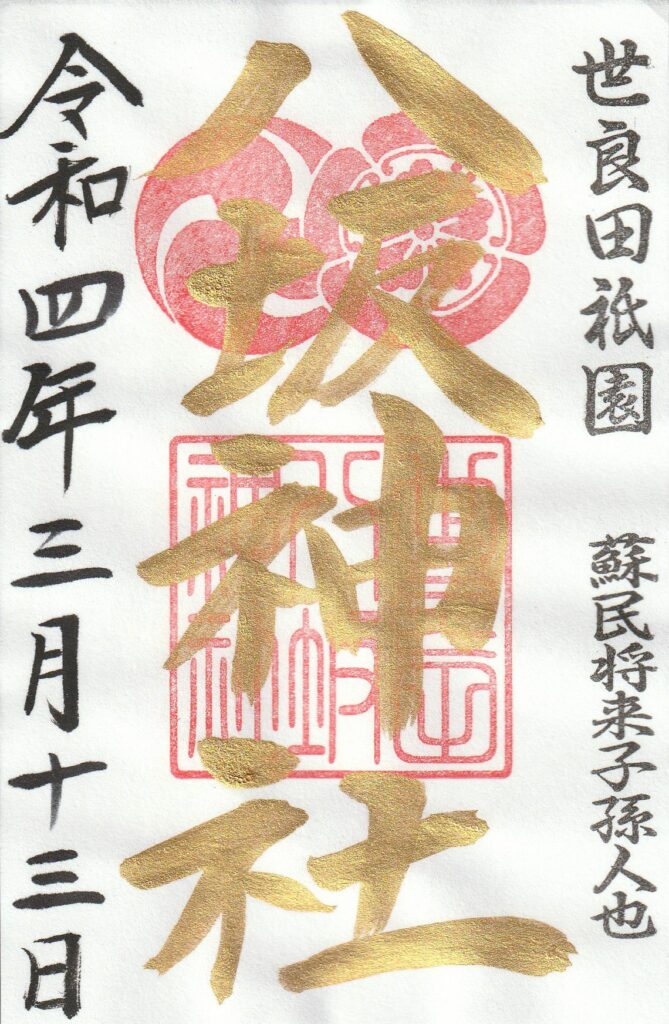 世良田祇園
蘇民将来子孫人也
八坂神社
令和四年三月十三日